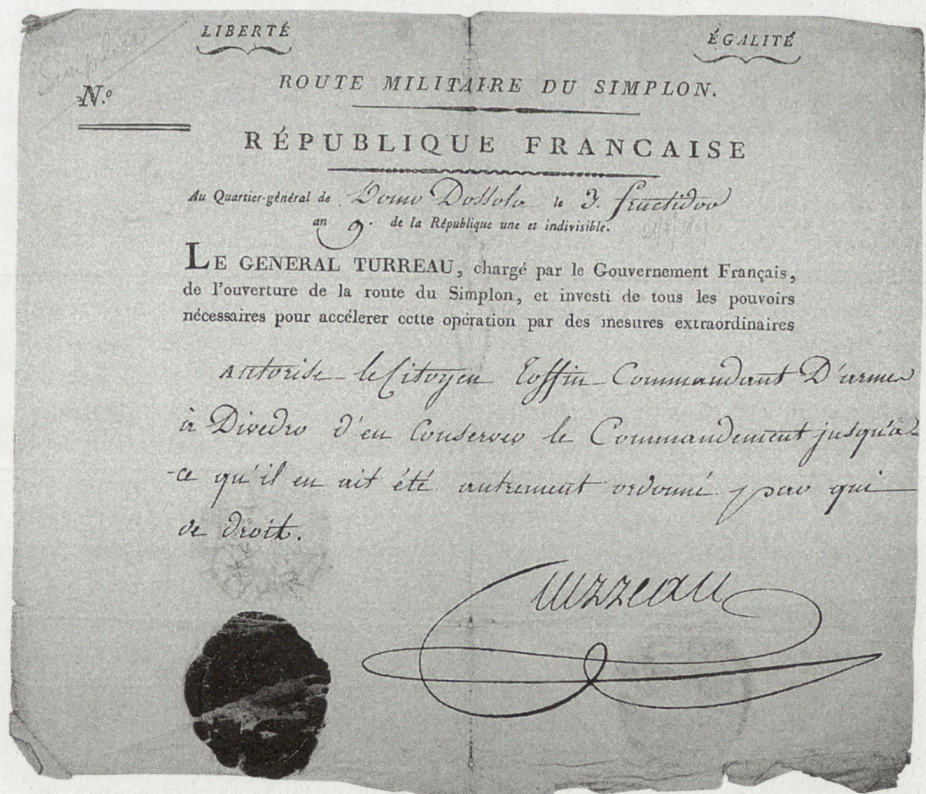 LIBERTÉ
ÉGALITÉ
N.º
ROUTE MILITAIRE DU SIMPLON.
RÉPUBLIQUE FRANCAISE
Au Quartier-général de Domo Dossola le 3. fructidor
an 9. de la République une et indivisible.
LE GENERAL TURREAU, chargé par le Gouvernement Français,
de l'ouverture de la route du Simplon, et investi de tous les pouvoirs
nécessaires pour accélerer cette opération par des mesures extraordinaires
autorise le Citoyen Coffin Commandant D'armes
à Divedro d'en Conserver le Commandement jusqu'à
ce qu'il en ait été autrement ordonné par qui
de droit.
Turreau